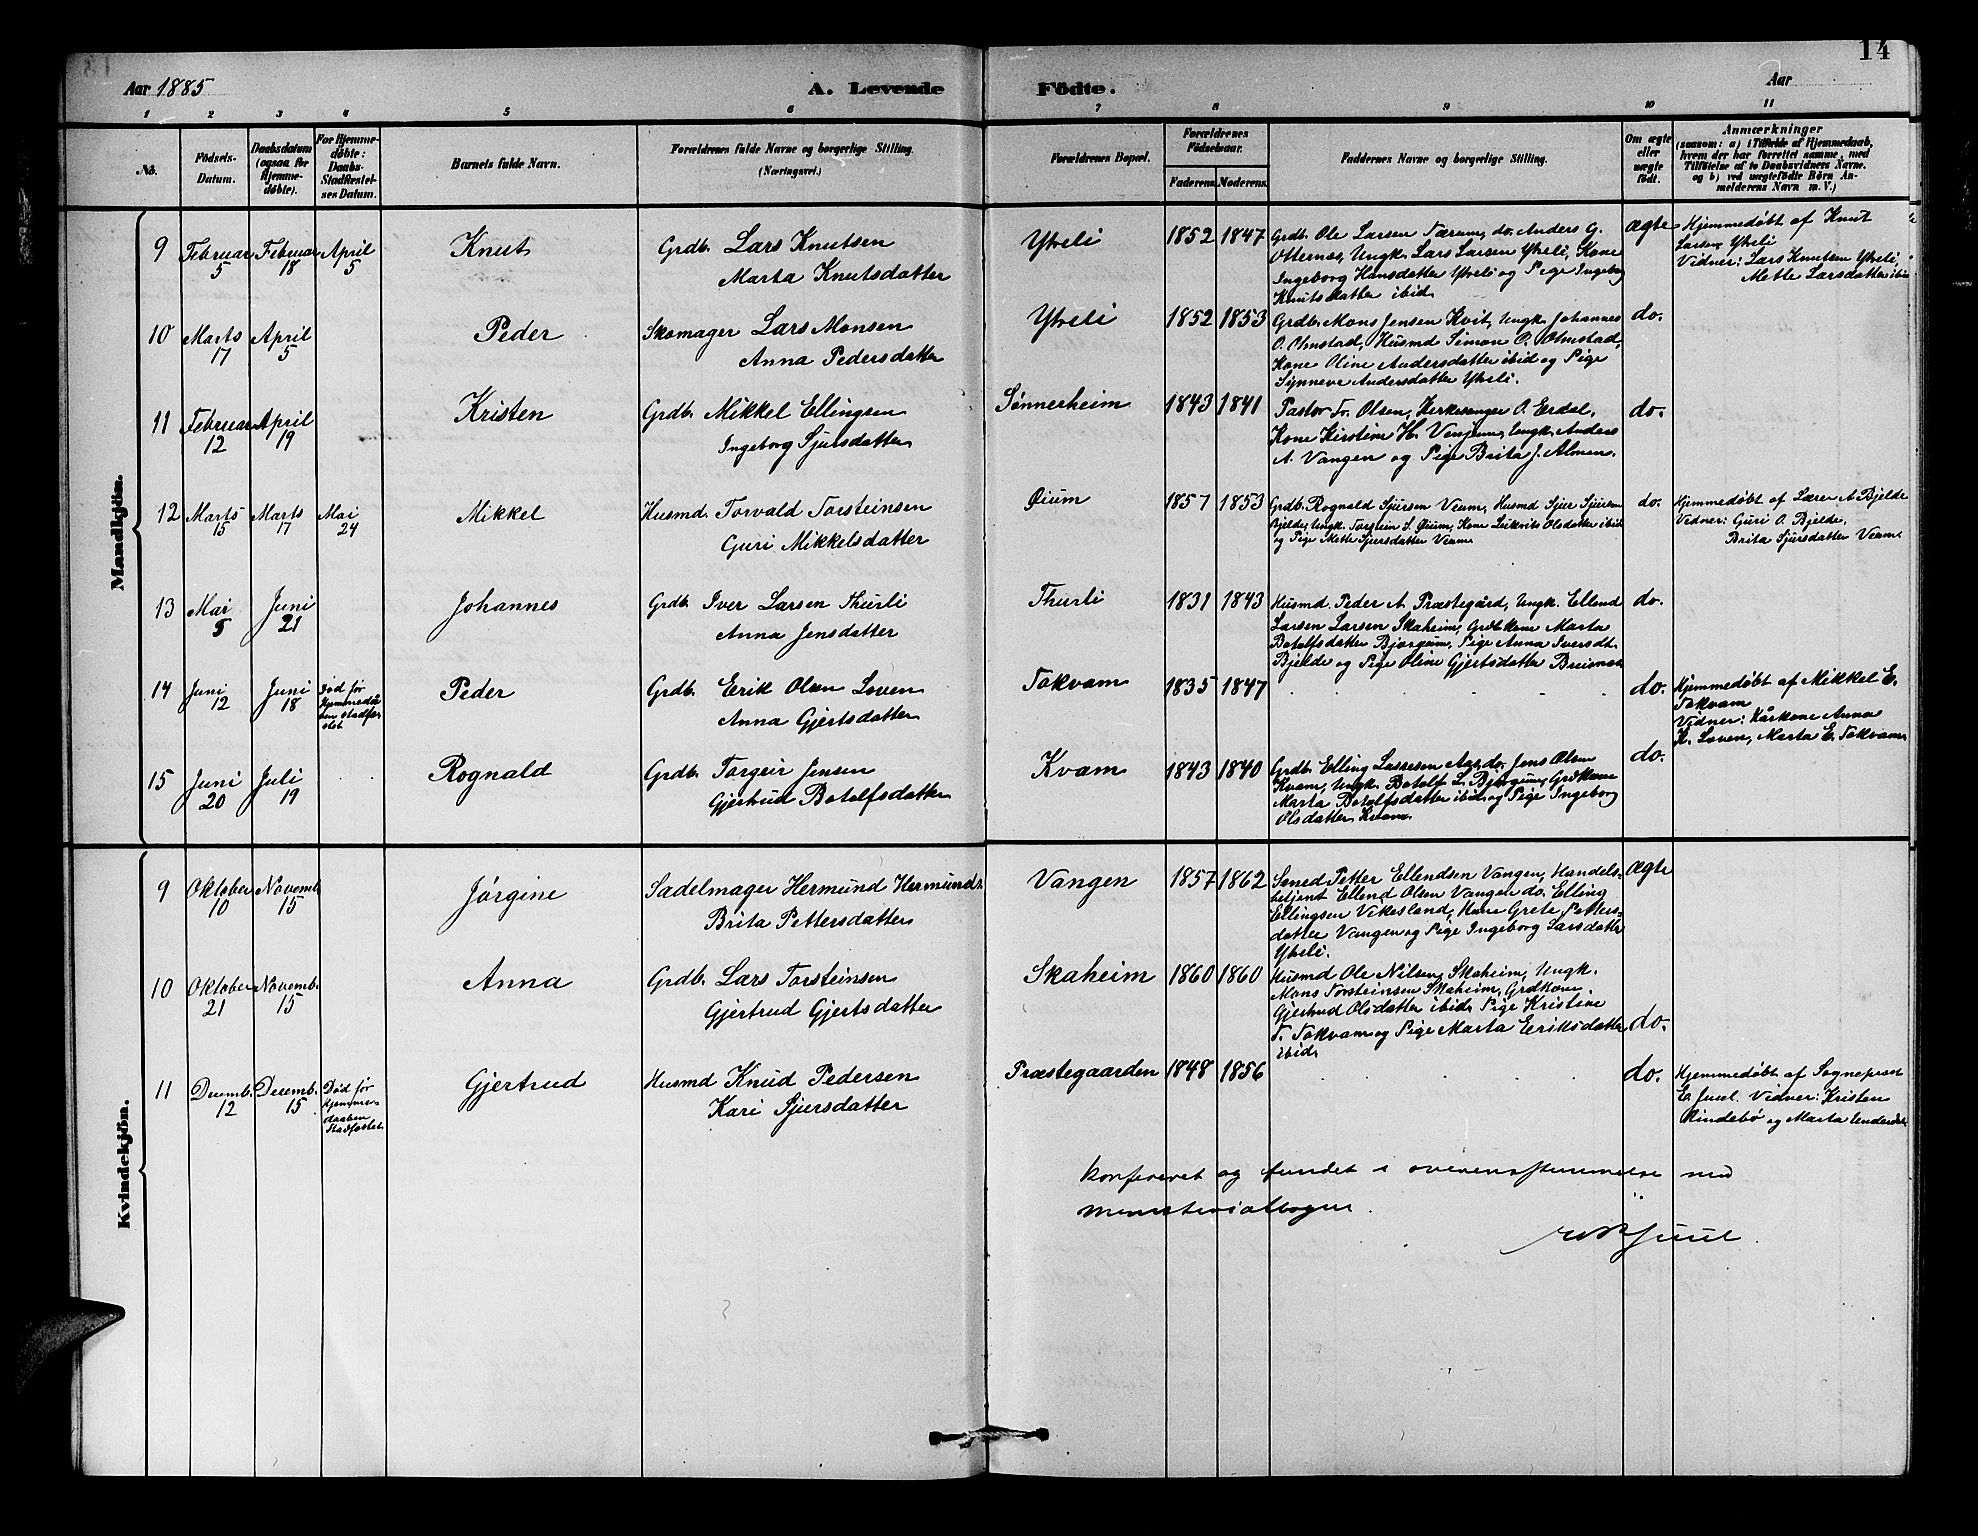 14
Aar 1885
A. Levende Födte.
Aar
1 2 3 4 5 6 7 8 9 10 11
No.
Födsels-Datum.
Daabsdatum (ogsaa for Hjemme-döbte).
For Hjemme-döbte: Daabs-Stadfæstel-ses Datum.
Barnets fulde Navn.
Forældrenes fulde Navne og borgerlige Stilling. (Næringsvei.)
Forældrenes Bopæl.
Forældrenes Födselsaar.
Faderens. Moderens.
Faddernes Navne og borgerlige Stilling.
Om ægte eller uægte födt.
Anmærkninger
(saasom: a) i Tilfælde af Hjemmedaab, hvem der har forrettet samme, med Tilföielse af to Daabsvidners Navne. og b) ved uægtefödte Börn An-melderens Navn m. V.)
Mandkjön.
9 Februar 5 Februar 18 April 5 Knut Grdb. Lars Knutsen
Marta Knutsdatter
Ytreli 1852 1847 Grdb. Ole Larsen Tærum, do. Anders G.
Otternes, Ungk. Lars Larsen Ytreli, Kone
Ingeborg Hansdatter Ytreli og Pige Ingeborg
Knutsdatter ibid.
ægte Hjemmedøbt af Knut
Larsen Ytreli
Vidner: Lars Knutsen Ytreli,
Metle Larsdatter ibid
10 Marts 17 April 5 Peder Skomager Lars Monsen
Anna Pedersdatter
Ytreli 1852 1853 Grdb. Mons Jensen Kvit, Ungk. Johannes
O. Ohnstad, Husmd Simon O. Ohnstad,
Kone Oline Andersdatter ibid og Pige
Synneve Andersdatter Ytreli.
do.
11 Februar 12 April 19 Kristen Grdb. Mikkel Ellingsen
Ingeborg Sjursdatter
Sønnerheim 1843 1841 Pastor Tr. Olsen, Kirkesanger O. Erdal,
Kone Kirstine H. Venjum, Ungk. Anders
A. Vangen og Pige Brita J. Almen.
do.
12 Marts 15 Marts 17 Mai 24 Mikkel Husmd. Torvald Torsteinsen
Guri Mikkelsdatter
Øium 1857 1853 Grdb. Rognald Sjursen Veum, Husmd Sjur Sjursen
Bjelde, Ungk. Torstein S. Øium, Kone Olsdatter ibid
og Pige Mette Sjursdatter Veum
do. Hjemmedøbt af Lærer A Bjelde
Vidner: Guri O. Bjelde,
Brita Sjursdatter Veum.
13 Mai 5 Juni 21 Johannes Grdb. Iver Larsen Thurli
Anna Jensdatter
Thurli 1831 1843 Husmd. Peder A. Præstegård, Ungk. Ellend
Larsen Larsen Skaheim, Grdkone Marta
Botolfsdatter Bjørgum, Pige Anna Iversdt.
Bjelde og Pige Oline Gjertsdatter Bruisnæs
do.
14 Juni 12 Juni 18 Død før
Hjemmedå-
ben stadfæ-
stet.
Peder Grdb. Erik Olsen Loven
Anna Gjertsdatter
Tokvam 1835 1847 do. Hjemmedøbt af Mikkel E.
Tokvam
Vidner: Kårkone Anna
K. Loven, Marta E. Tokvam
15 Juni 20 Juli 19 Rognald Grdb. Torgeir Jensen
Gjertrud Botolfsdatter
Kvam 1843 1840 Grdb. Elling Lassesen Aa, do. Jens Olsen
Kvam, Ungk. Botolf L. Bjørgum, Grdkone
Marta Botolfsdatter ibid, og Pige Ingeborg
Olsdatter Kvam.
do.
Kvindekjön.
9 Oktober 10 Novemb. 15 Jørgine Sadelmager Hermund Hermunds.
Brita Pettersdatter
Vangen 1857 1862 Smed Petter Ellendsen Vangen, Handels-
betjent Ellend Olsen Vangen do. Elling
Ellingsen Vikesland, Kone Grete Petters-
datter Vangen og Pige Ingeborg Larsdatter
Ytreli.
Ægte
10 Oktober 21 Novemb. 15 Anna Grdb. Lars Torsteinsen
Gjertrud Gjertsdatter
Skaheim 1860 1860 Husmd Ole Nilsen Skaheim, Ungk.
Mons Torsteinsen Skaheim, Grdkone
Gjertrud Olsdatter ibid, Pige Kristine
T. Tokvam og Pige Marta Eriksdatter
ibid.
do.
11 Decemb. 12 Decemb. 15 Død før
Hjemme-
daaben
Stadfæstet.
Gjertrud Husmd Knud Pedersen
Kari Sjursdatter
Præstegaarden 1848 1856 do. Hjemmedøbt af Sogneprest
E. Juul. Vidner: Kristen
Rindebø og Marta Underdal
Konfereret og fundet i overensstemmelse med
ministerialbogen.
Juul.